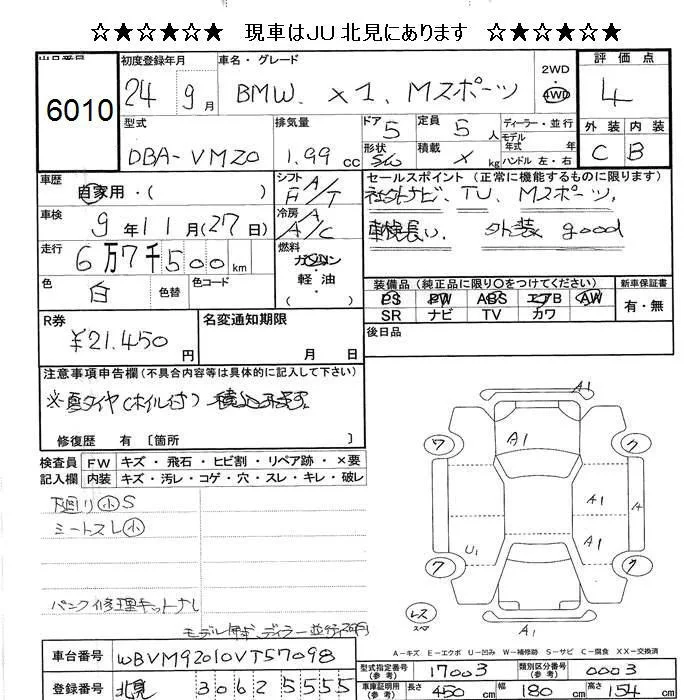 ☆★☆★☆★☆ 現車はJU北見にあります ☆★☆★☆★☆
出品番号 初度登録年月 車名・グレード 2WD 4WD 評価点
6010 24 9月 BMW. X1. Mスポーツ 4
型式 排気量 ドア 定員 ディーラー・並行 外装 内装
5 5人 モデル年式 年
DBA-VM20 1.99cc 形状 SW 積載 X kg ハンドル 左・右 C B
車歴 シフト セールスポイント(正常に機能するものに限ります)
自家用・( ) F A/T 社外ナビ、TV、Mスポーツ、
車検 冷房
9年11月(27日) A A/C 車検長い、外装good
走行 燃料
6万7千500km ガソリン
色 色替 色コード 軽油 装備品(純正品に限り○をつけてください) 新車保証書
白 PS PW ABS エアB AW 有・無
SR ナビ TV カワ
R券 名変通知期限 後日品
¥21.450円 月 日
注意事項申告欄(不具合内容等は具体的に記入して下さい)
※夏タイヤ(ホイル付)
修復歴 有〔箇所 〕
検査員 FW キズ・飛石・ヒビ割・リペア跡・×要
記入欄 内装 キズ・汚レ・コゲ・穴・スレ・キレ・破レ
A1
ワ ワ
A1
A1 A
U1 A1
ワ ワ
レス スペ
A1
下廻り小S
ミートスレ小
パンク修理キットナし
モデル ディラー並行
A-キズ E-エクボ U-凹み W-補修跡 S-サビ C-腐食 XX-交換済
車台番号 WBVM92010VT57098 型式指定番号(参考) 17003 類別区分番号(参考) 0003
登録番号 北見 306 25555 車庫証明用(参考) 長さ 450cm 幅 180cm 高さ 154cm